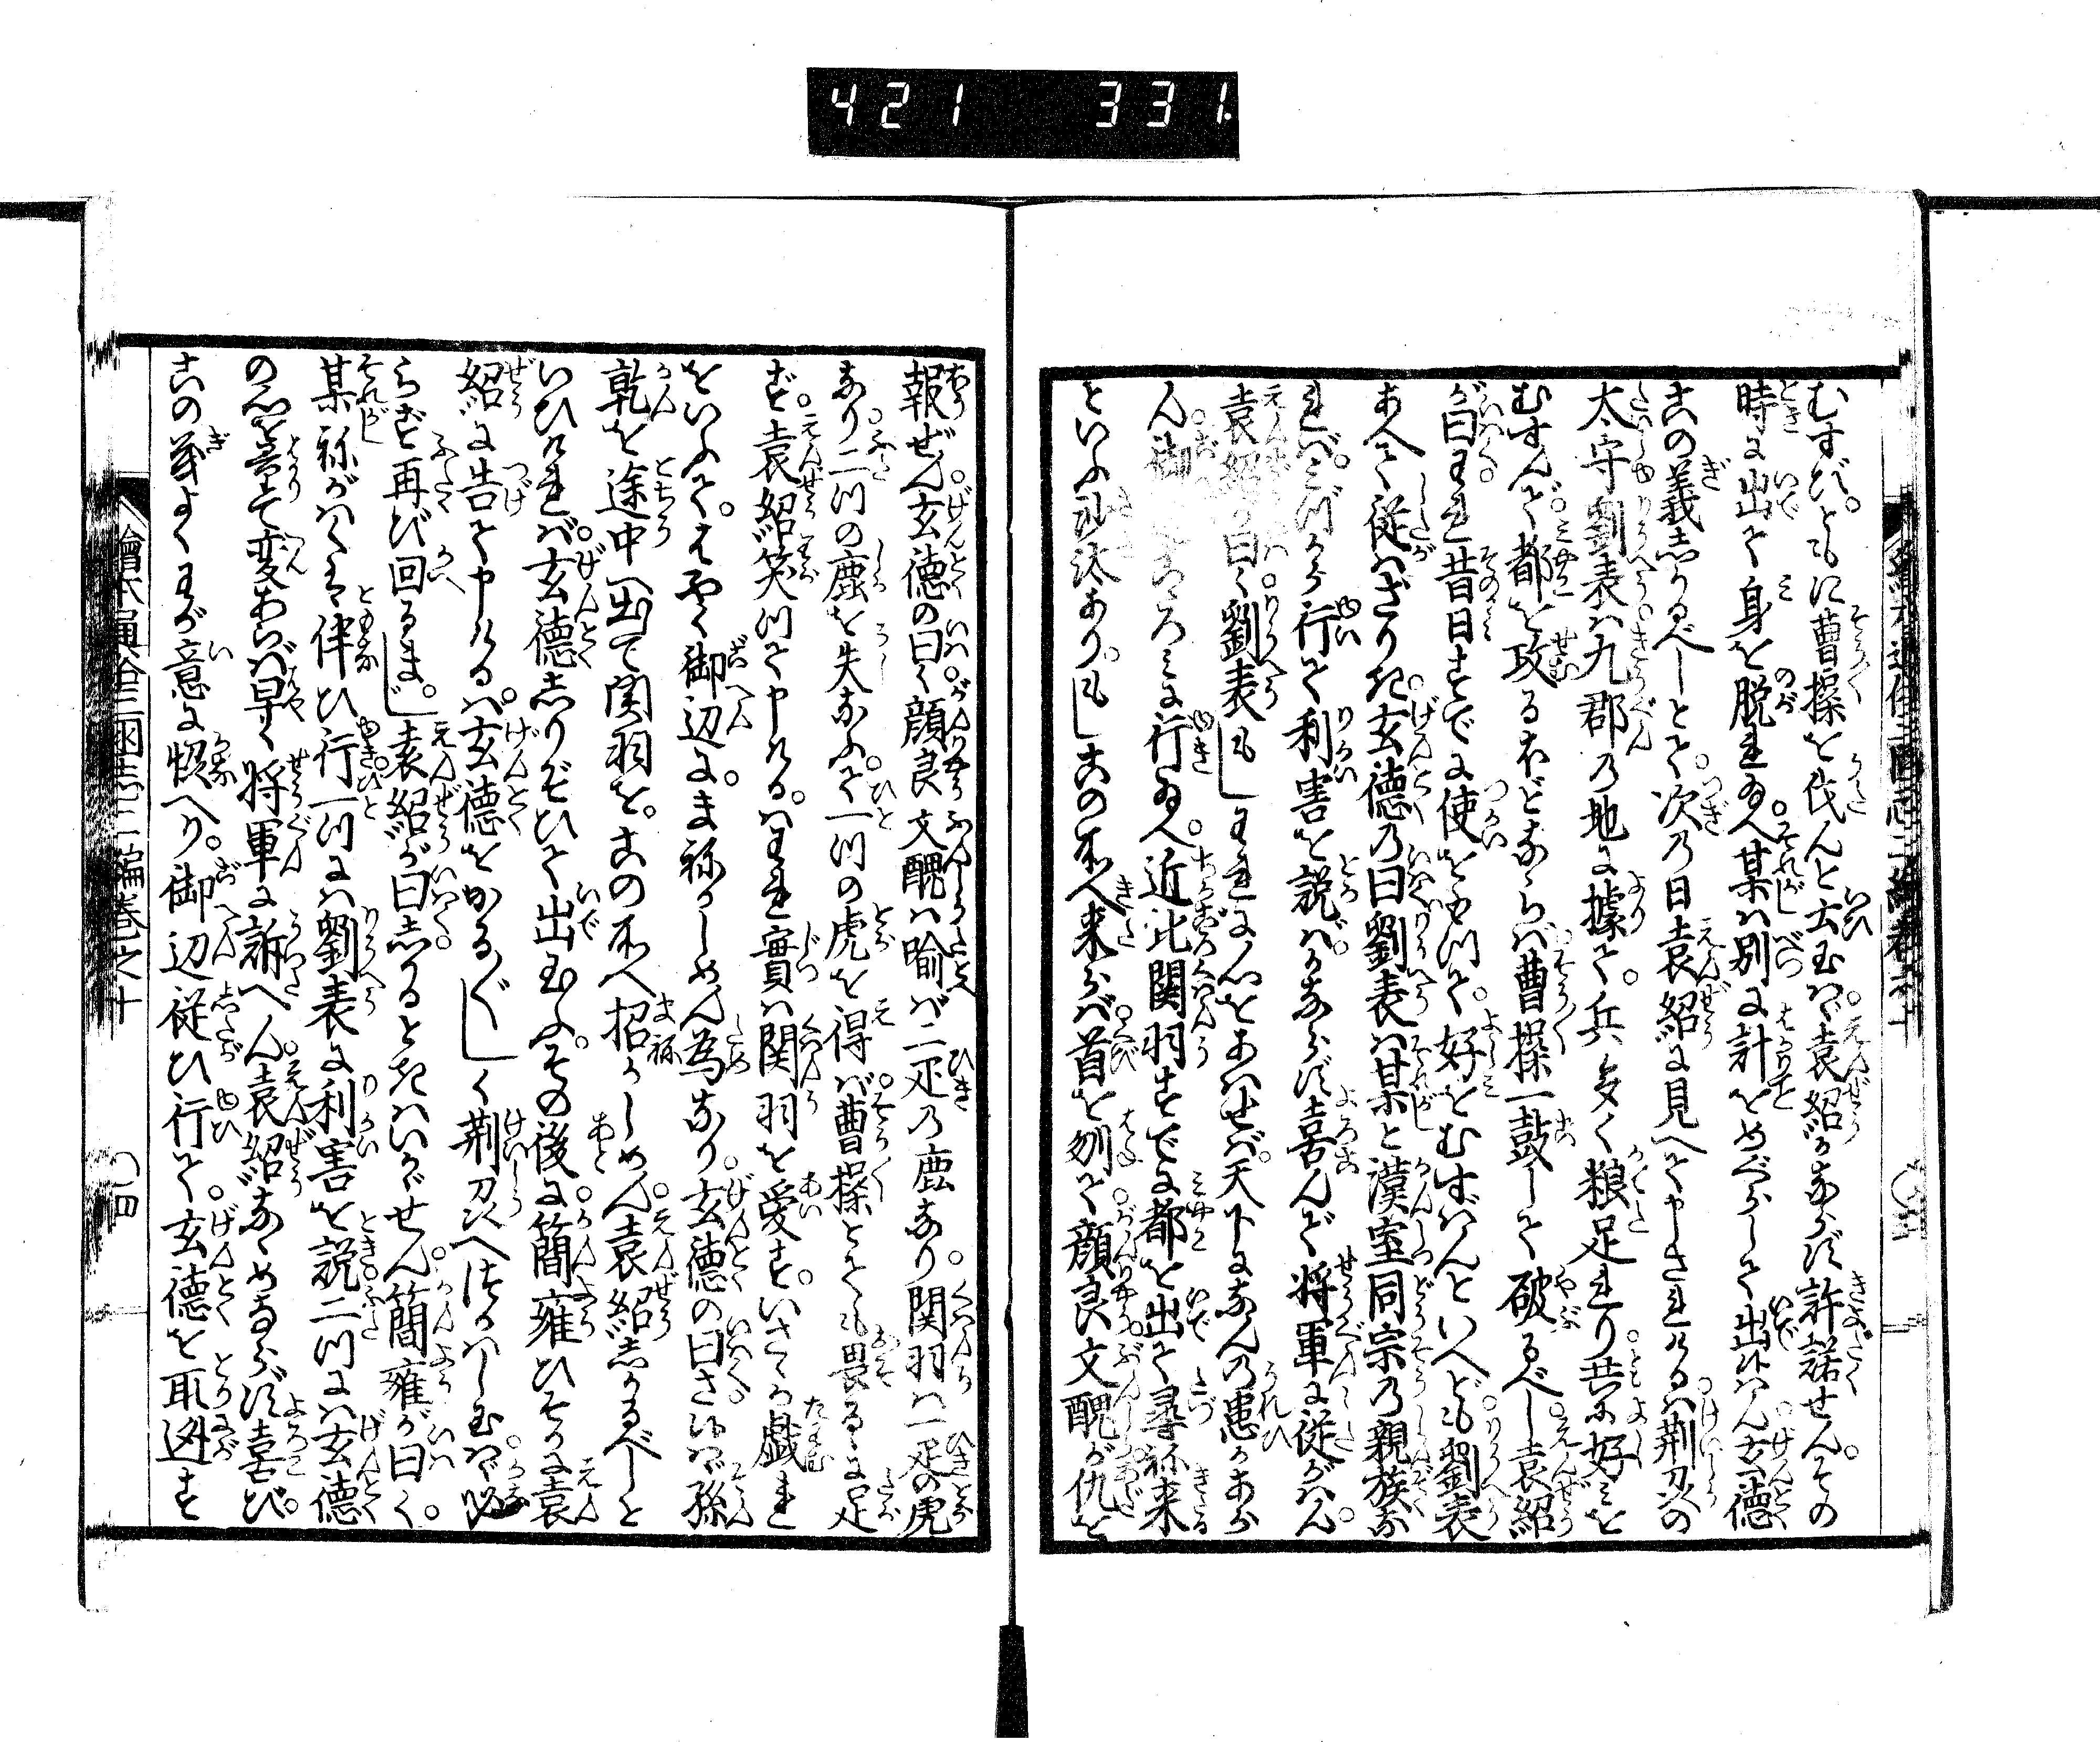 421 331.
むすび。ともに曹操を伐んと云玉はゞ。袁紹かならず許諾せん。その
時に出て身を脱れ玉へ某は別に計をめぐらして出候はん玄徳
この義しかるべしとて。次の日袁紹に見へて申されけるは荊州の
太守劉表は九郡の地に據て。兵多く粮足れり共に好みを
むすんで都を攻るほどならば曹操一鼓して破るべし袁紹
が曰われ昔日すでに使をやつて。好をむすばんといへども劉表
あへて従はざりき。玄徳の曰劉表は某と漢室同宗の親族な
れば。みづから行て利害を説ばかならず喜んで将軍に従がはん。
袁紹が曰く劉表もしわれに心をあはせば天下になんの患かあら
ん御 ころみに行玉へ。近比関羽すでに都を出て尋ね来
といふ沙汰あり。もしこの所へ来らば首を刎て顔良文醜が仇を
報ぜん玄徳の曰く顔良文醜は喩ば二疋の鹿なり。関羽は一疋の虎
なり。二つの鹿を失なふて一つの虎を得ば曹操とても畏るゝに足
ず。袁紹笑つて申ける。はわれ實は関羽を愛す。いさゝか戯れ
をいふて。はやく御辺に。まねかしめん為なり。玄徳の曰さ候はゞ孫
乾を途中へ出て関羽を。この所へ招かしめん袁紹しかるべしと
いひければ。玄徳しりぞひて出玉ふ。その後に簡雍ひそかに袁
紹に告て申けるは。玄徳をかるがるしく荊州へつかはし玉はゞ必
らず再び回るまじ。袁紹が曰しかるときはいかゞせん簡雍が曰く。
某ねがはくは伴ひ行一つには劉表に利害を説二つには玄徳
の心を量て変あらば早く将軍に訴へん。袁紹なゝめならず喜び。
この義よくわが意に愜へり。御辺従ひ行て。玄徳を取迯す
繪本通俗三國志二編巻之十
〇四